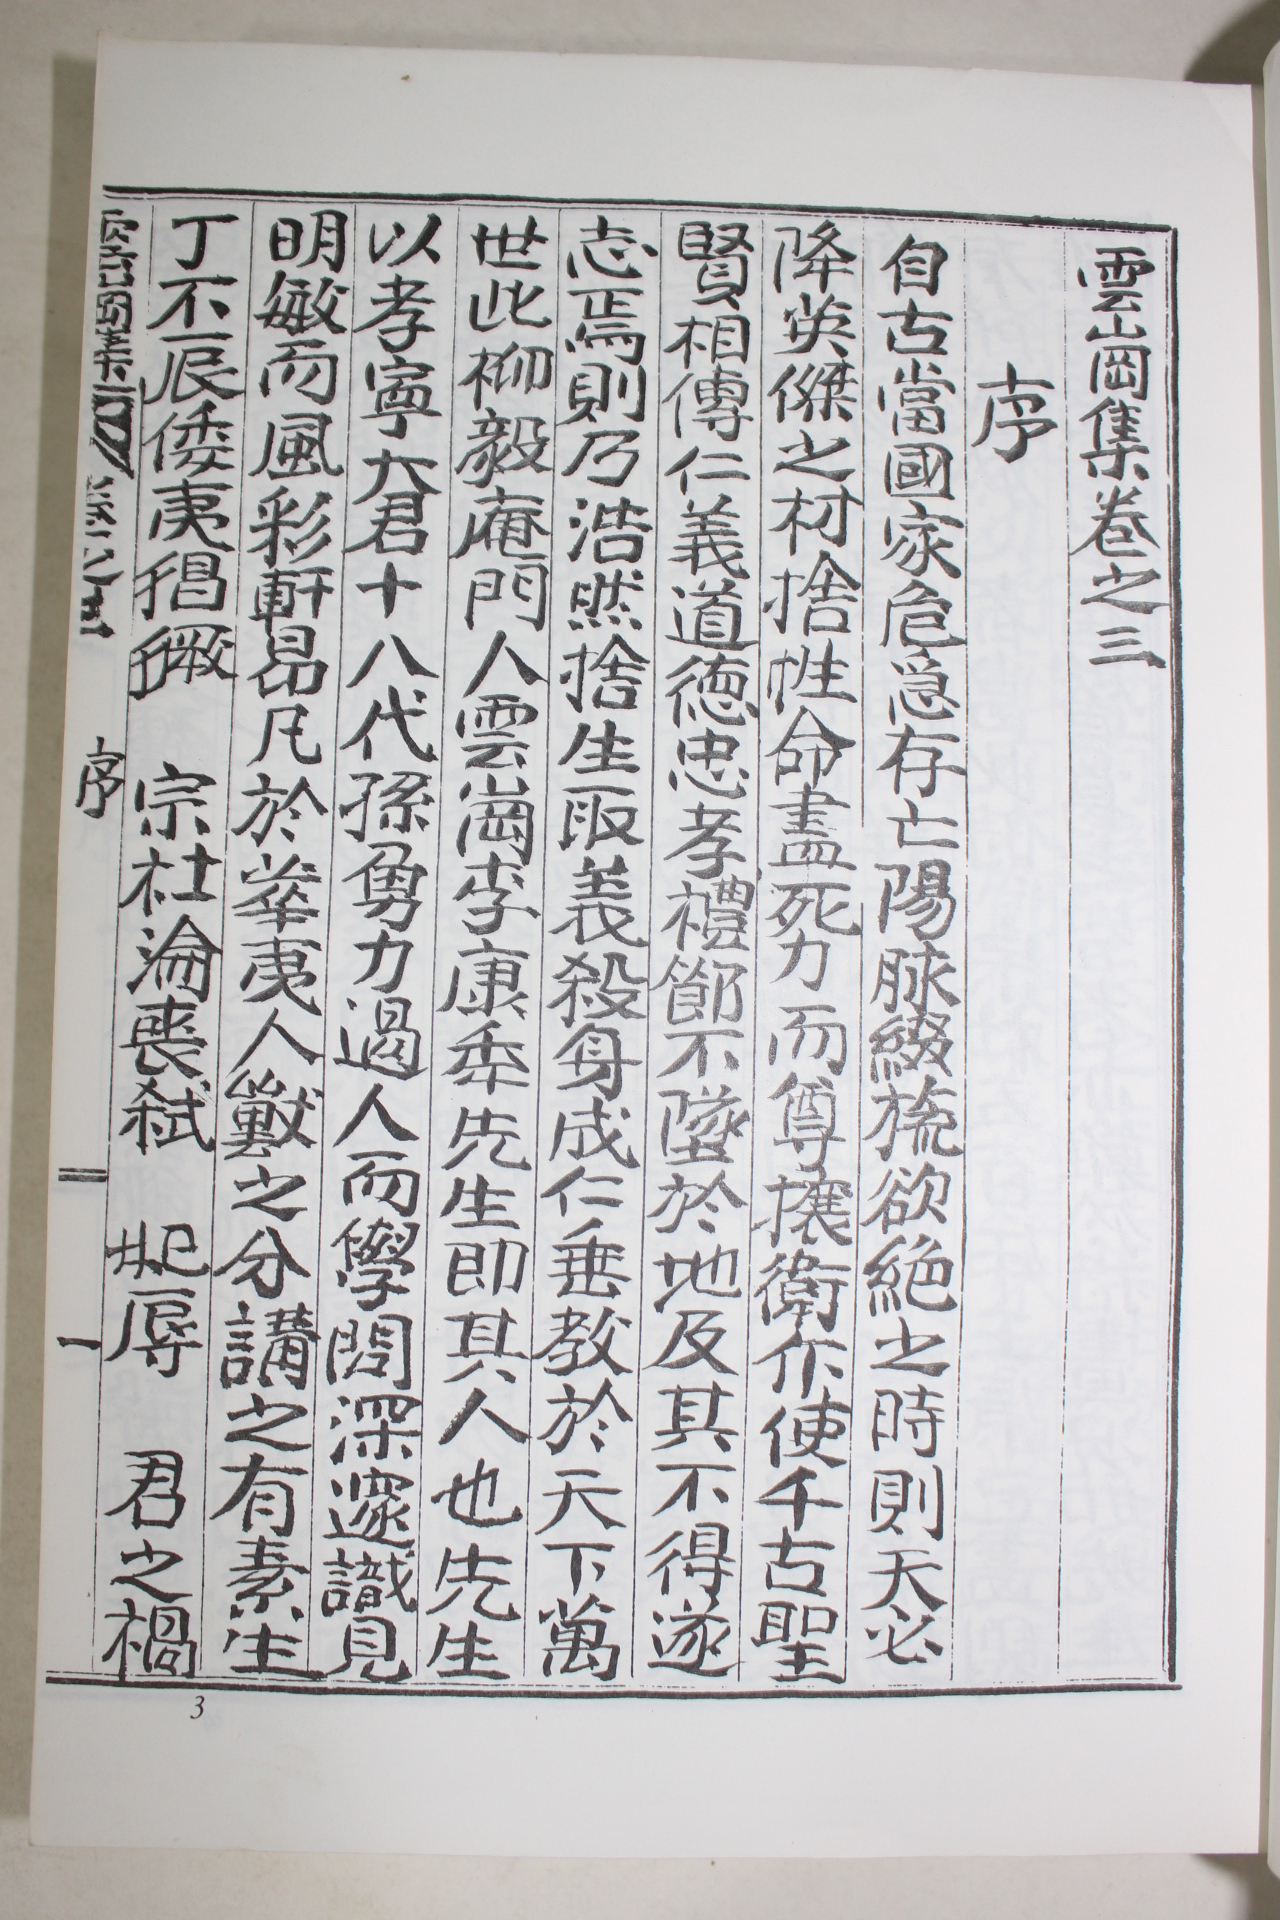 雲岡集卷之三
序
自古當國家危急存亡陽脉綴旒欲絶之時則天必
降英傑之材捨性命盡死力而尊攘衛作使千古聖
賢相傳仁義道德忠孝禮節不墜於地及其不得遂
志焉則乃浩然捨生取義殺身成仁垂教於天下萬
世此柳毅庵門人雲崗李康秊先生即其人也先生
以孝寧大君十八代孫勇力過人而學問深邃識見
明敏而風彩軒昂凡於華夷人獸之分講之有素生
丁不辰倭夷猖獗 宗社淪喪弑 妃辱 君之禍
雲岡集 卷之三 序 一
3